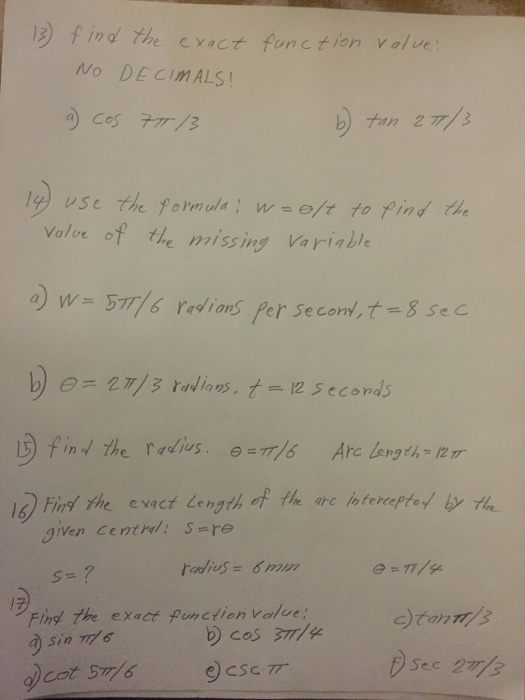 13) find the exact function value:
NO DECIMALS!
a) cos 7π/3 b) tan 2π/3
14) use the formula: w = θ/t to find the
value of the missing variable
a) W = 5π/6 radians per second, t = 8 sec
b) θ = 2π/3 radians, t = 12 seconds
15) find the radius. θ = π/6 Arc Length = 12π
16) Find the exact Length of the arc intercepted by the
given central: S = rθ
S = ? radius = 6mm θ = π/4
17) Find the exact function value: c) tan π/3
a) sin π/6 b) cos 3π/4
d) cot 5π/6 e) csc π f) sec 2π/3